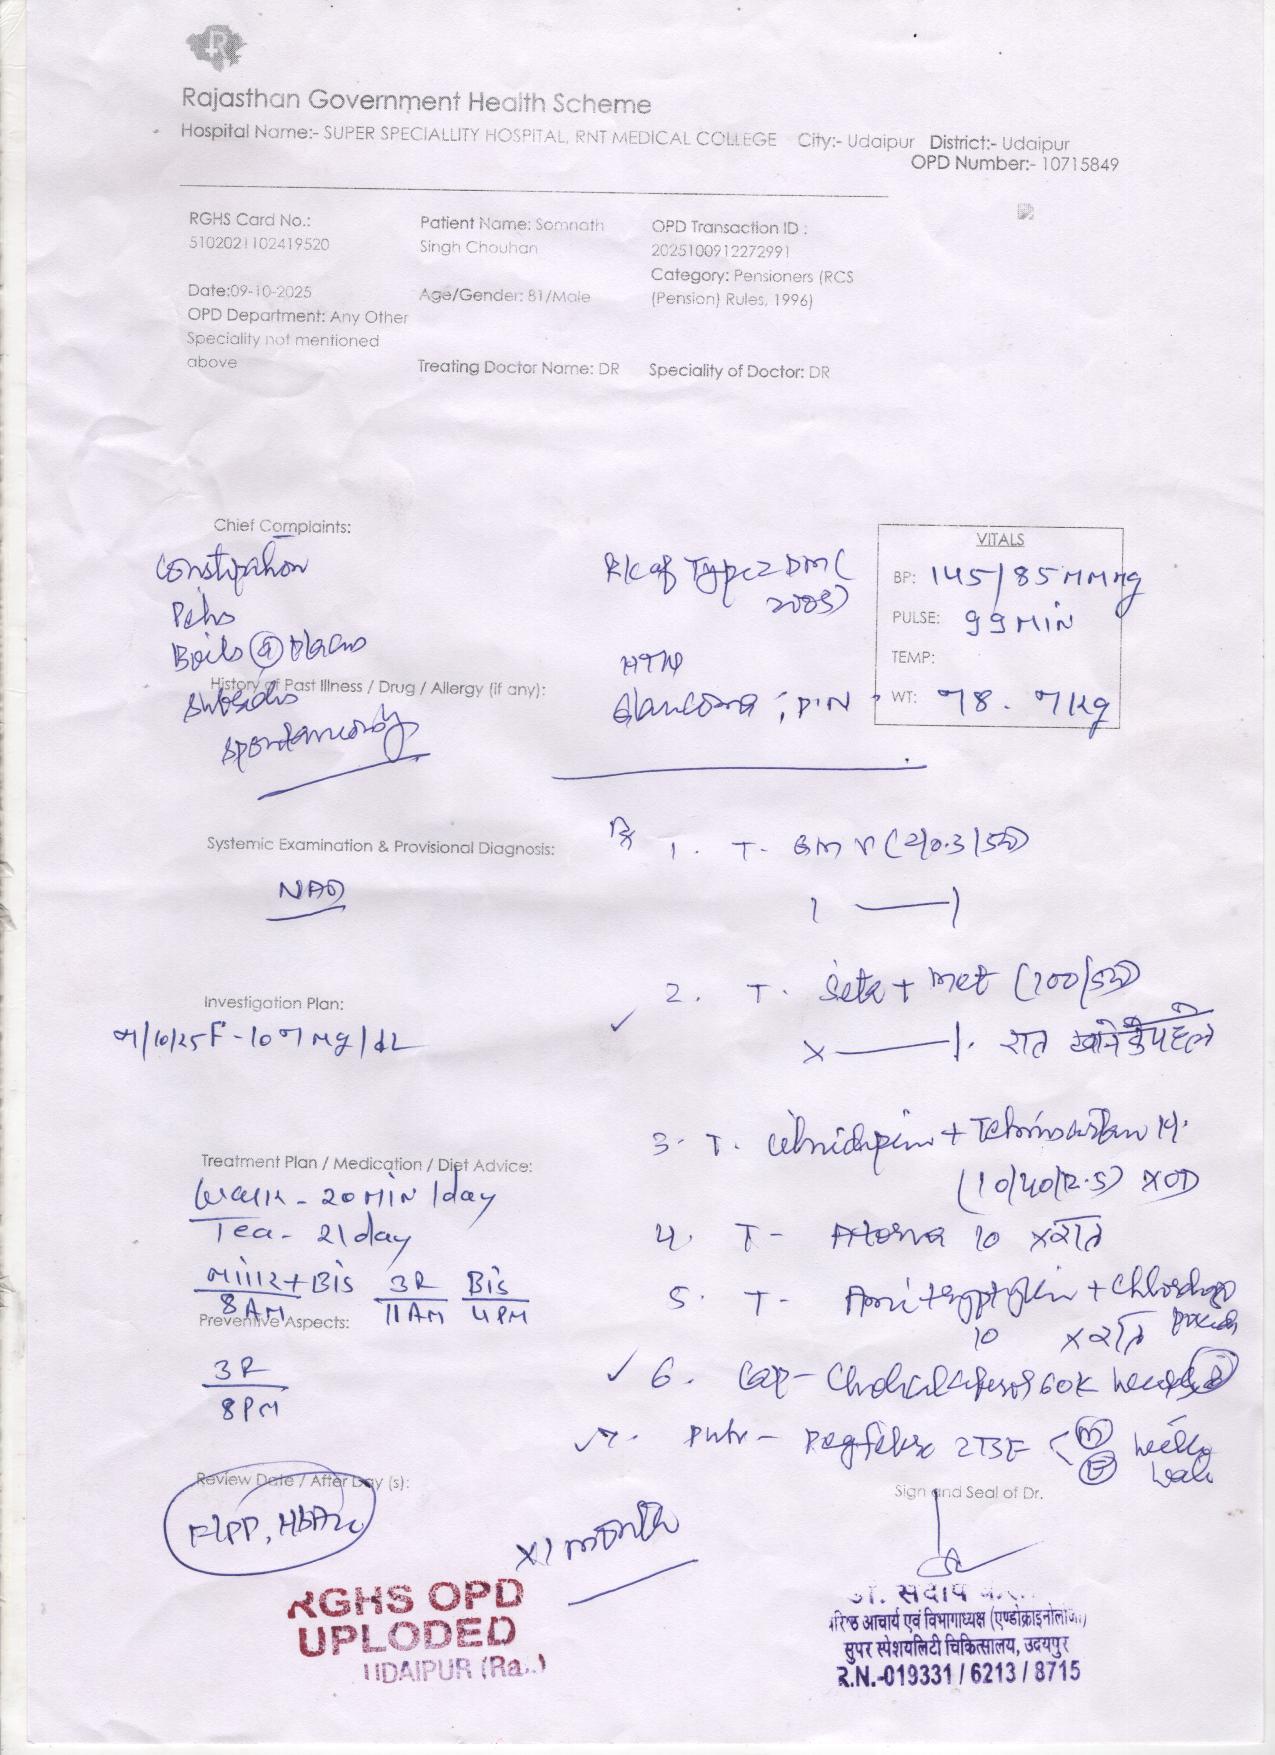 Rajasthan Government Health Scheme
Hospital Name:- SUPER SPECIALLITY HOSPITAL, RNT MEDICAL COLLEGE City:- Udaipur District:- Udaipur
OPD Number:- 10715849
RGHS Card No.:
5102021102419520
Patient Name: Somnath
Singh Chouhan
OPD Transaction ID :
2025100912272991
Category: Pensioners (RCS
(Pension) Rules, 1996)
Date:09-10-2025
Age/Gender: 81/Male
OPD Department: Any Other
Speciality not mentioned
above
Treating Doctor Name: DR
Speciality of Doctor: DR
Chief Complaints:
Constipation
Boils @ places
Subsides
spontaneously
K/c of Type 2 DM (
2005)
HTN
Glaucoma ;
VITALS
BP: 145/85 MMHg
PULSE: 99 MIN
TEMP:
WT: 78.7 Kg
History of Past Illness / Drug / Allergy (if any):
Systemic Examination & Provisional Diagnosis:
NAD
Rx 1. T. GM V (2/0.3/500)
1 — 1
Investigation Plan:
7/10/25 F - 107 Mg/dL
2. T. Sita + Met (100/500)
x — 1. रात खाने के पहले
Treatment Plan / Medication / Diet Advice:
Walk - 20 MIN /day
Tea - 2/day
Milk + Bis 3R Bis
8 AM 11 AM 4 PM
Preventive Aspects:
3R
8 PM
3. T. Cilnidipin + Telmisartan H.
(10/40/12.5) x OD
4. T - Atorva 10 x रात
5. T - Amitryptylin + Chlordiaz
10 x रात
6. Cap - Cholecalciferol 60K weekly
7.
weekly
Review Date / After Day (s):
F/PP, HbA1c
x 1 month
Sign and Seal of Dr.
RGHS OPD
UPLODED
UDAIPUR (Raj.)
वरिष्ठ आचार्य एवं विभागाध्यक्ष (एण्डोक्राइनोलॉजी)
सुपर स्पेशयलिटी चिकित्सालय, उदयपुर
R.N.-019331 / 6213 / 8715